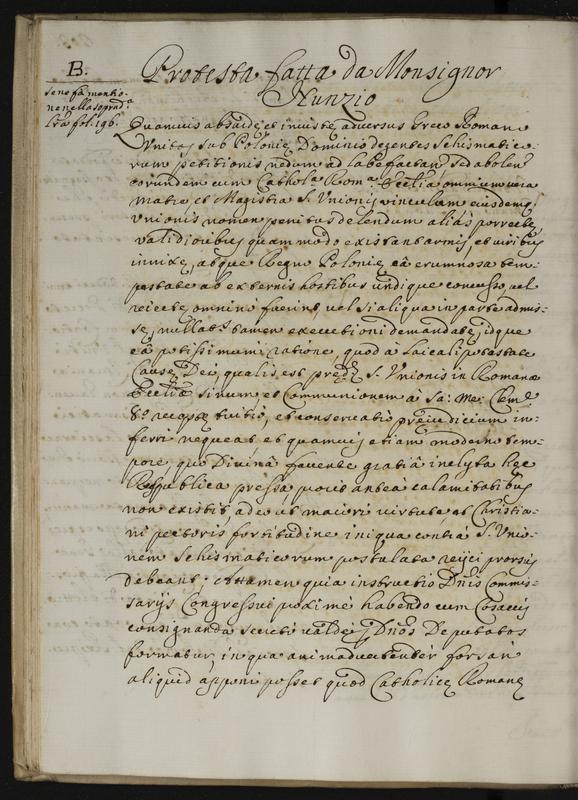 B.
Protesta fatta da Monsignor
Nunzio
se ne fà mentio-
ne nella soprad.ª
lr̃a fol. 196.
Quamuis absurdę et iniustę aduersus Greco Romanę
Unitos, sub Polonię Dominio degentes Schismatico-
rum petitionis nedum ad labefactan̄, sed abolen̄
eorundem cum Cathol.ª Rom.ª Ecctia omnium vera
matre et Magistra S. Unionis vinculum eiusdemq;
Unionis nomen penitus delendum aliàs porrectę
validioribus quam modo existant armis, et viribus
innixę, absque Regno Polonię, eâ erumnosa tem-
pestate ab externis hostibus undique concusso, vel
reiectę omninò fuerint, vel si aliqua in parte admis-
sę, nullat.s tamen executioni demandatę, idque
eâ potissimùm ratione, quod à laicali potestate
Causę Dei, qualis est pred.ę S. Unionis in Romanę
Ecctię sinum et Communionem à Sa: Me: Clem.e
8.º receptę tuitio, et conservatio pręiudicium in-
ferri nequeat et quamuis etiam moderno tem-
pore, quo Divinâ favente gratiâ inclyta hęc
Respublica pressa prout anteà calamitatibus
non existit, adeo ut maiori virtute ac Christia-
ni pectoris fortitudine iniqua contrà S. Unio-
nem Schismaticorum postulata reijci prorsus
debeant; Attamen quia instructio Dn̄is Commis-
sarijs Congressus proximè habendo cum Cosaccis
consignanda secretò valdè p Dn̄os Deputatos
formatur, in qua animadvertenter forsan
aliquid apponi posset quod Catholicę Romanę